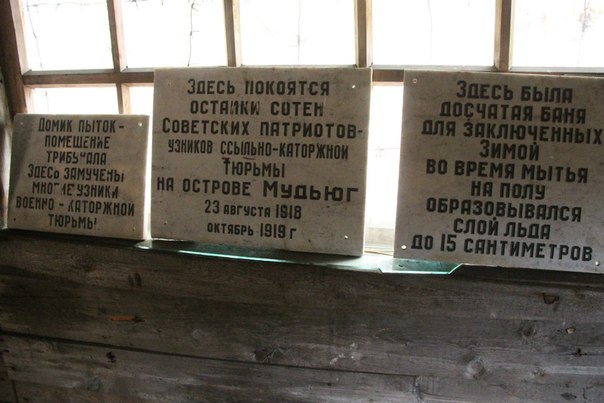 Домик пыток-
помещение
трибунала
Здесь замучены
многие узники
военно-каторжной
тюрьмы
Здесь покоятся
останки сотен
Советских патриотов-
узников ссыльно-каторжной
тюрьмы
на острове Мудьюг
23 августа 1918
октябрь 1919 г
Здесь была
досчатая баня
для заключенных
зимой
во время мытья
на полу
образовывался
слой льда
до 15 сантиметров